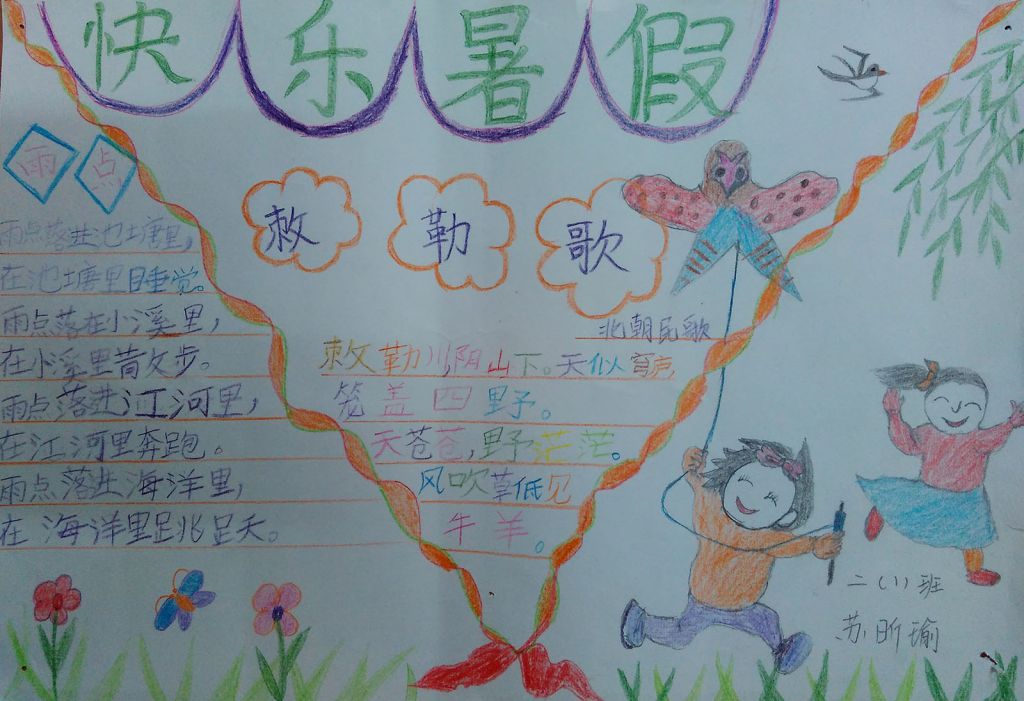 快乐暑假
雨点
雨点落进池塘里，
在池塘里睡觉。
雨点落在小溪里，
在小溪里散步。
雨点落进江河里，
在江河里奔跑。
雨点落进海洋里，
在海洋里跳跃。
敕勒歌
北朝民歌
敕勒川，阴山下。天似穹庐，
笼盖四野。
天苍苍，野茫茫。
风吹草低见
牛羊。
二（1）班
苏昕瑜